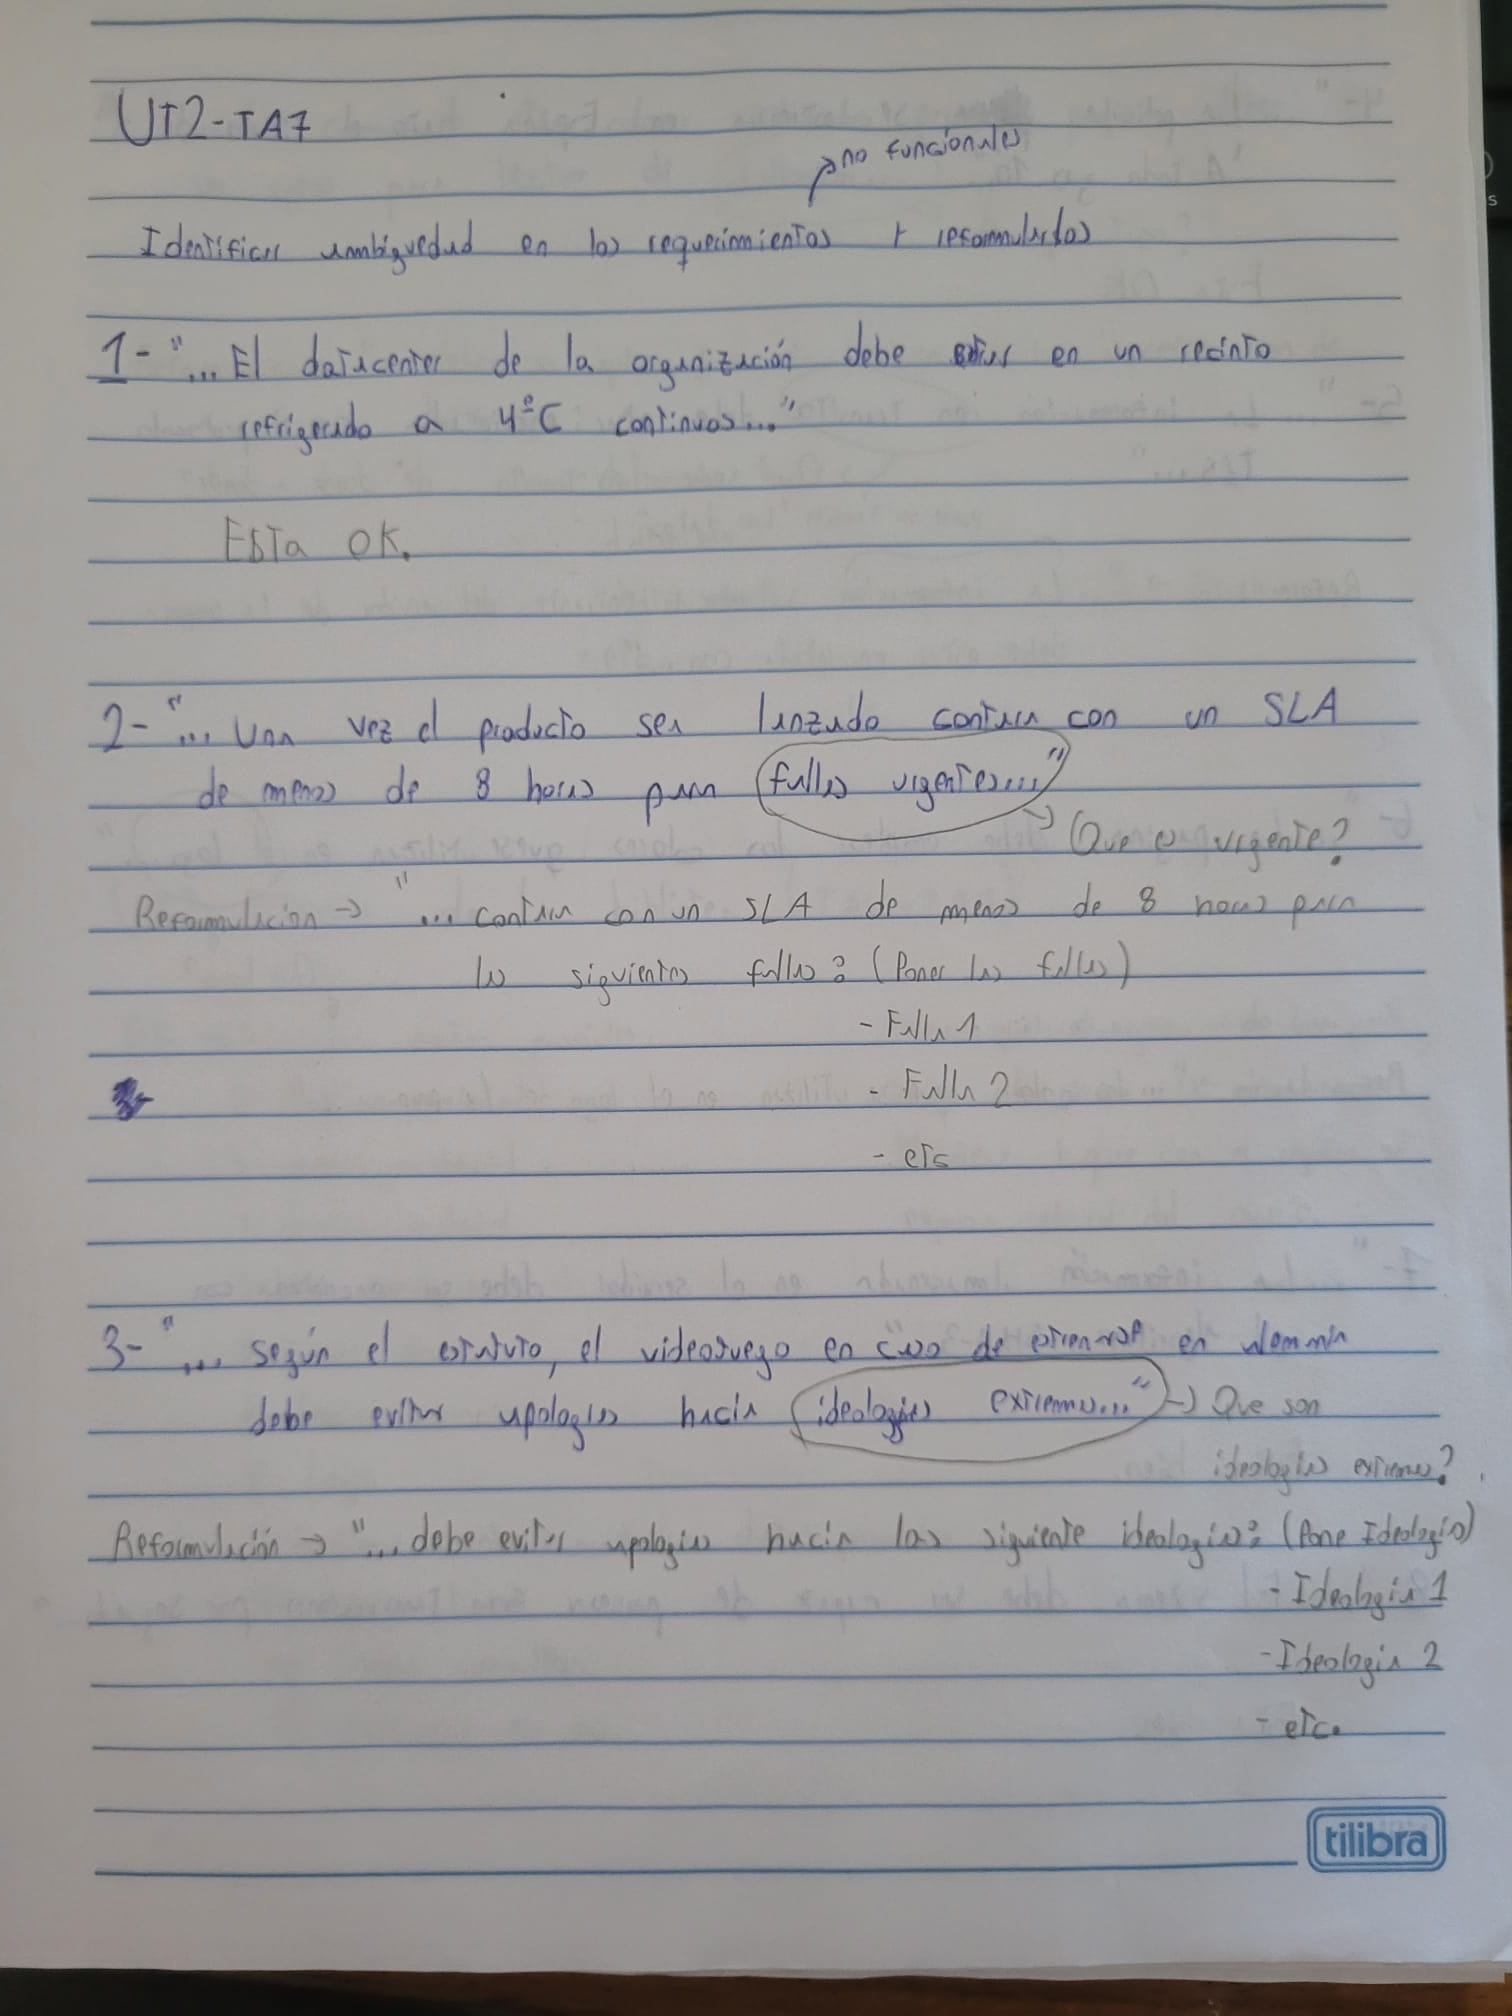 UT2-TA7
no funcionales
Identificar ambiguedad en los requerimientos + reformularlos
1- "... El datacenter de la organización debe estar en un recinto
refrigerado a 4°C continuos..."
Esta OK.
2- "... Una vez el producto sea lanzado contara con un SLA
de menos de 8 horas para fallas urgentes..."
Que es urgente?
Reformulacion → "... contara con un SLA de menos de 8 horas para
las siguientes fallas: (Poner las fallas)
- Falla 1
3-
- Falla 2
- ets
3- "... según el estatuto, el videojuego en caso de estrenarse en alemania
debe evitar apologias hacia ideologias extremas..." → Que son
ideologias extremas?
Reformulación → "... debe evitar apologias hacia las siguiente ideologias: (Pone Ideologia)
- Ideologia 1
- Ideologia 2
- etc.
tilibra